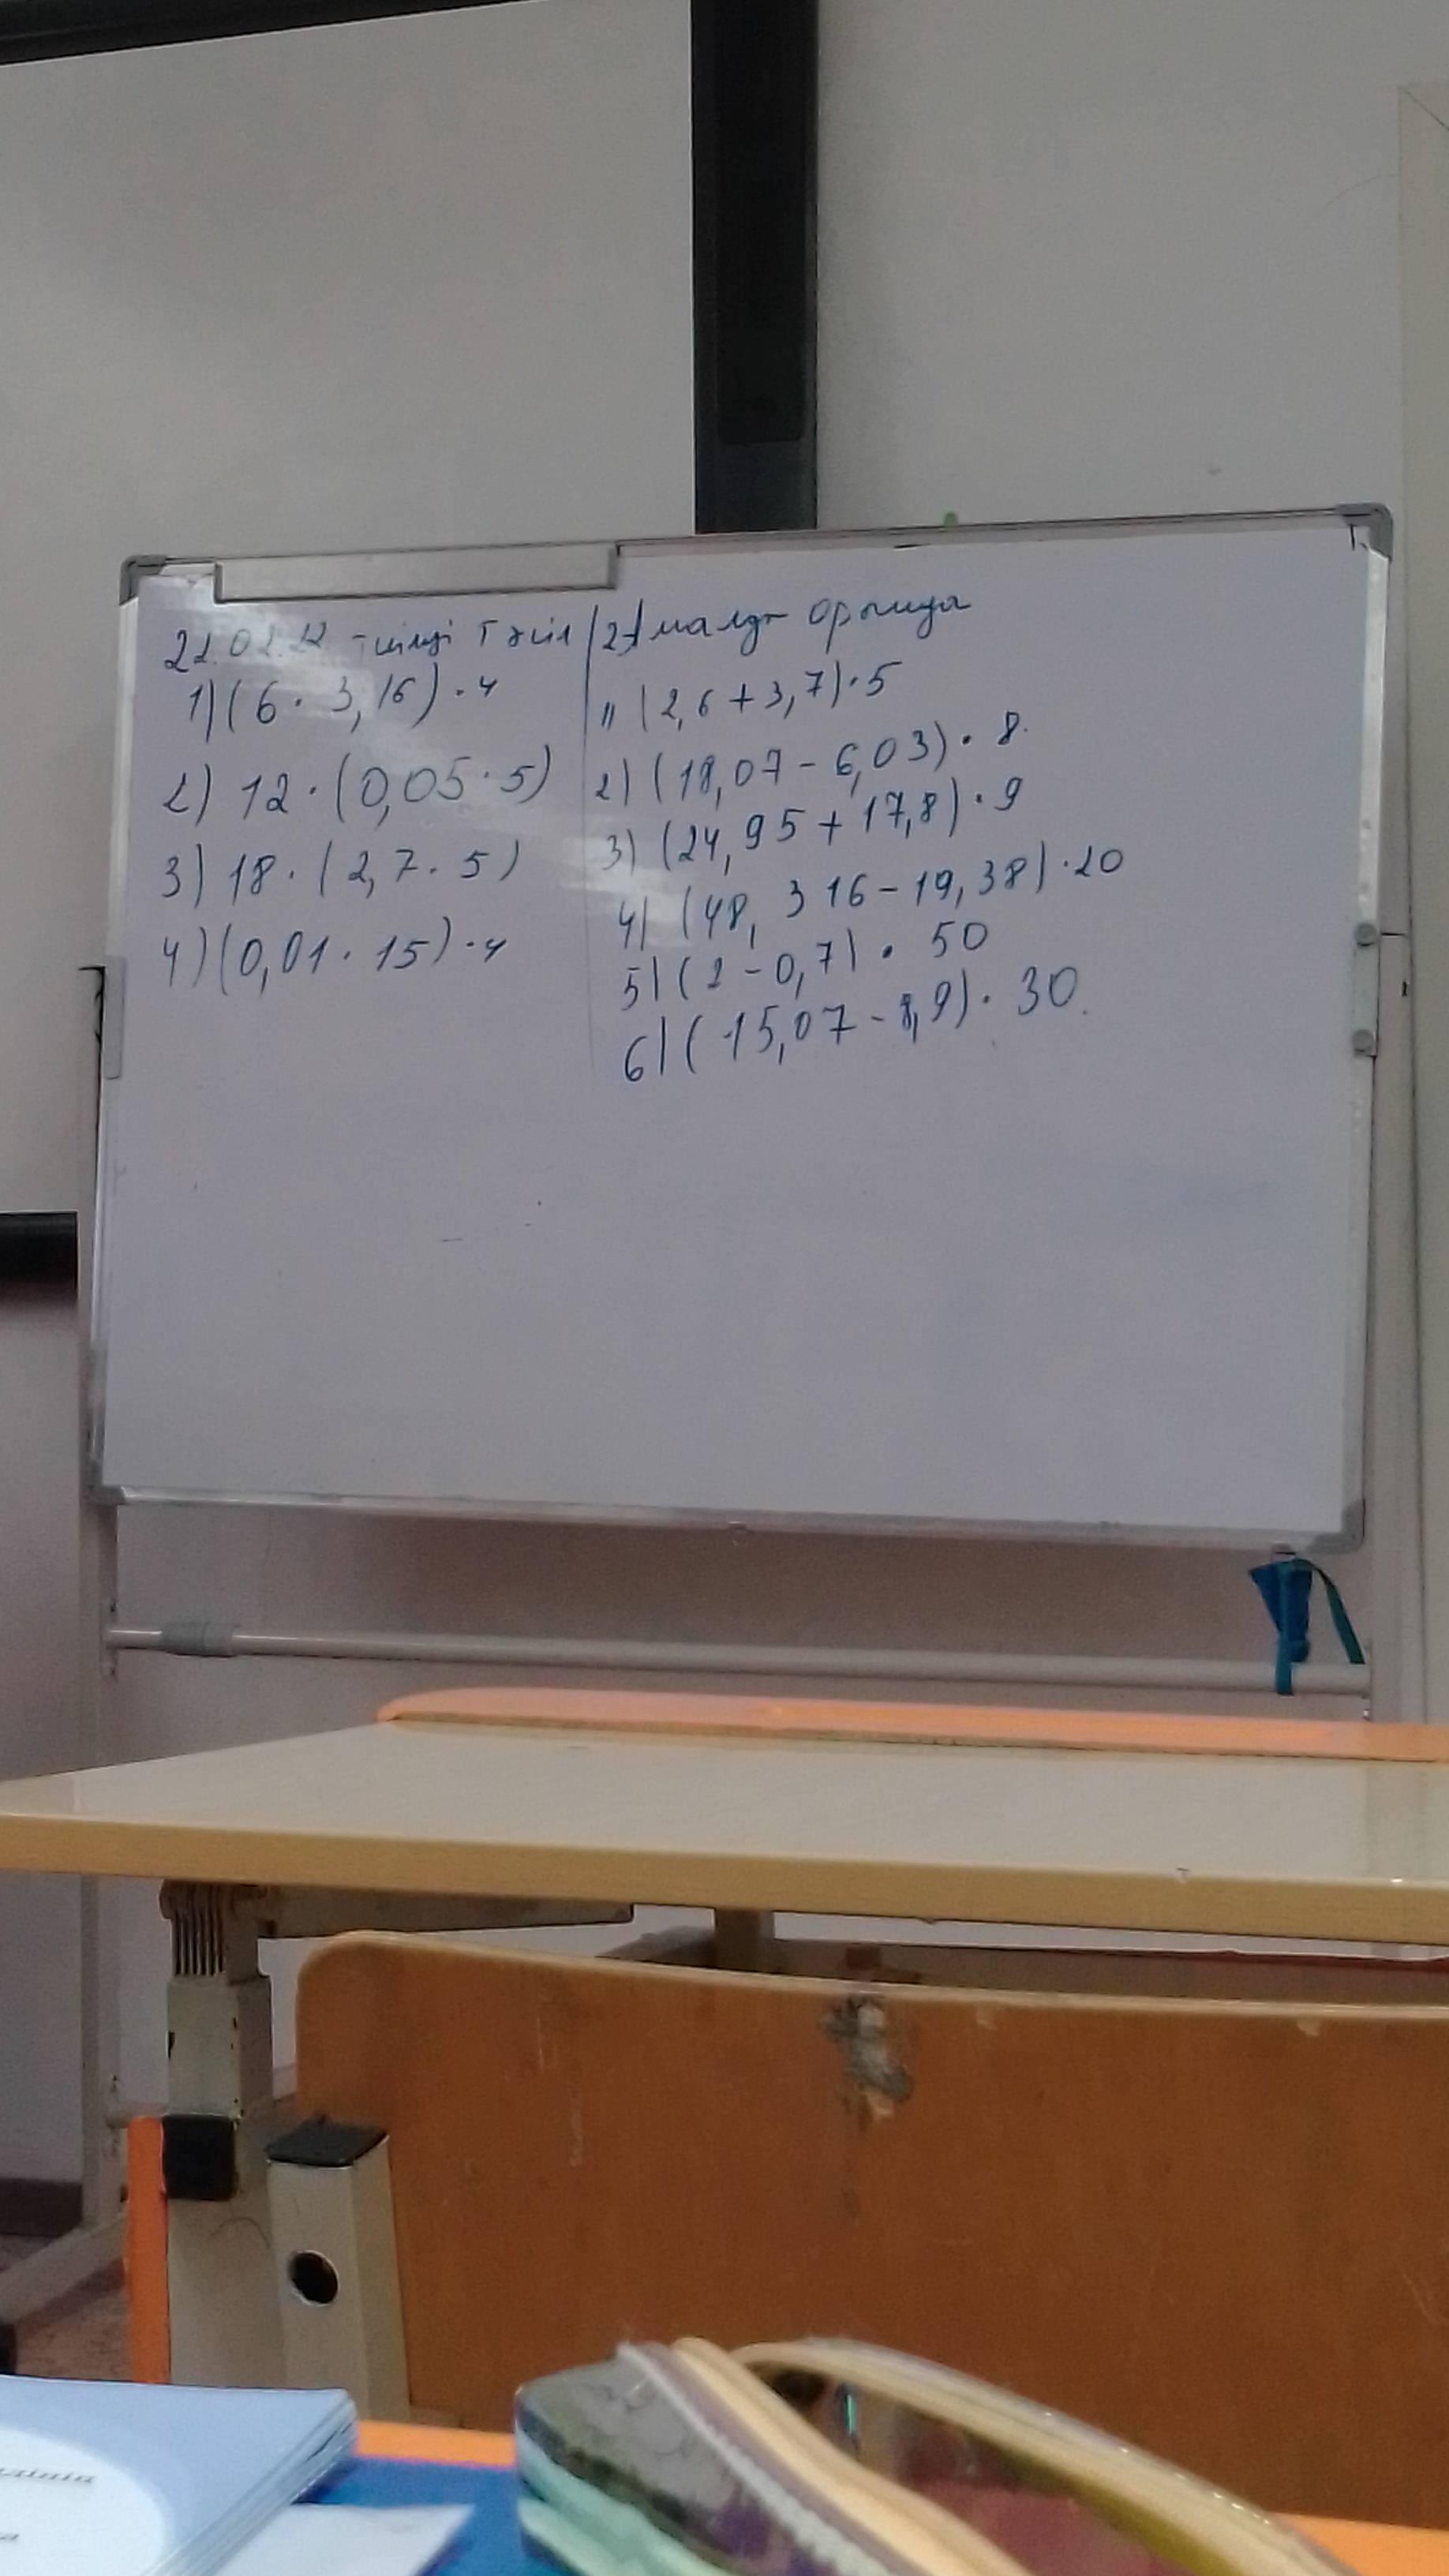 тиімді тәсіл
1) (6 · 3,16) · 4
2) 12 · (0,05 · 5)
3) 18 · (2,7 · 5)
4) (0,01 · 15) · 4
2) Амалды орында
1) (2,6 + 3,7) · 5
2) (18,07 - 6,03) · 8.
3) (24,95 + 17,8) · 9
4) (48,316 - 19,38) · 20
5) (2 - 0,7) · 50
6) (15,07 - 8,9) · 30.